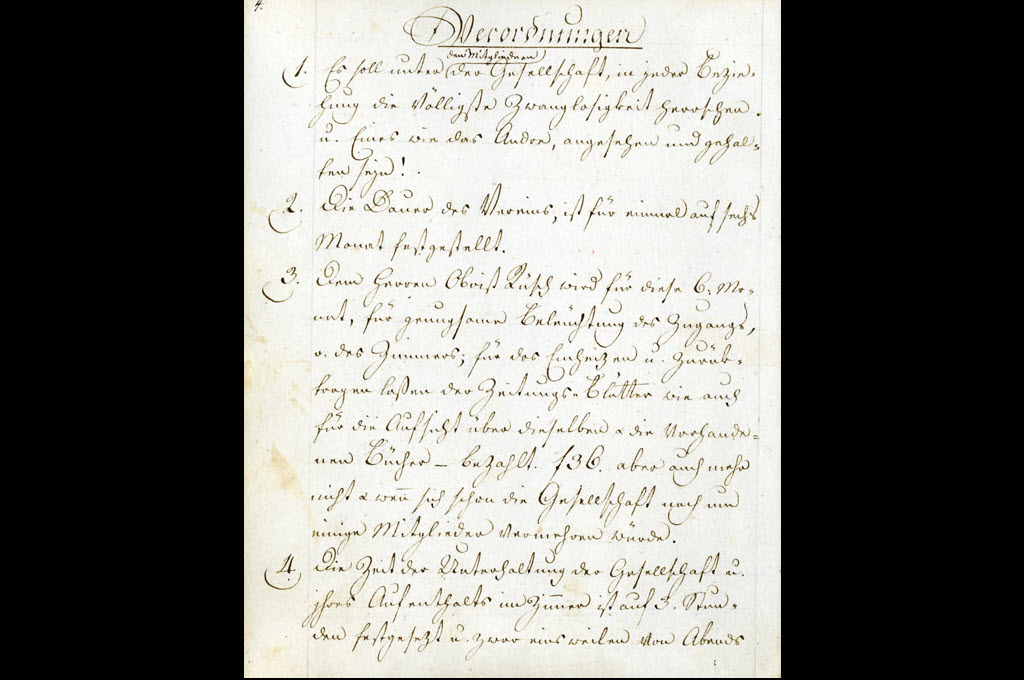 4.
Verordnungen
den Mitgliedern
1. Es soll unter der Gesellschaft, in jeder Bezie-
hung die Völligste Zwanglosigkeit herrschen.
u. Eines wie das Andre, angesehen und gehal-
ten seyn!
2. Die Dauer des Vereins, ist für einmal auf sechs
Monat festgestellt.
3. Dem Herren Obrist Rüsch wird für diese 6: Mo-
nat, für genugsame Beleüchtung des Zugangs,
u. des Zimmers; für das Einheitzen u. zurük-
tragen laßen der Zeitungs-Blätter wie auch
für die Aufsicht über dieselben & die Vorhande-
nen Bücher – bezahlt. f 36. aber auch mehr
nicht & wen sich schon die Gesellschaft noch um
einige Mitglieder vermehren würde.
4. Die Zeit der Unterhaltung der Gesellschaft u.
jhres Aufenthalts im Zimer ist auf 3. Stun-
den festgesetzt u. zwar einsweilen von Abends